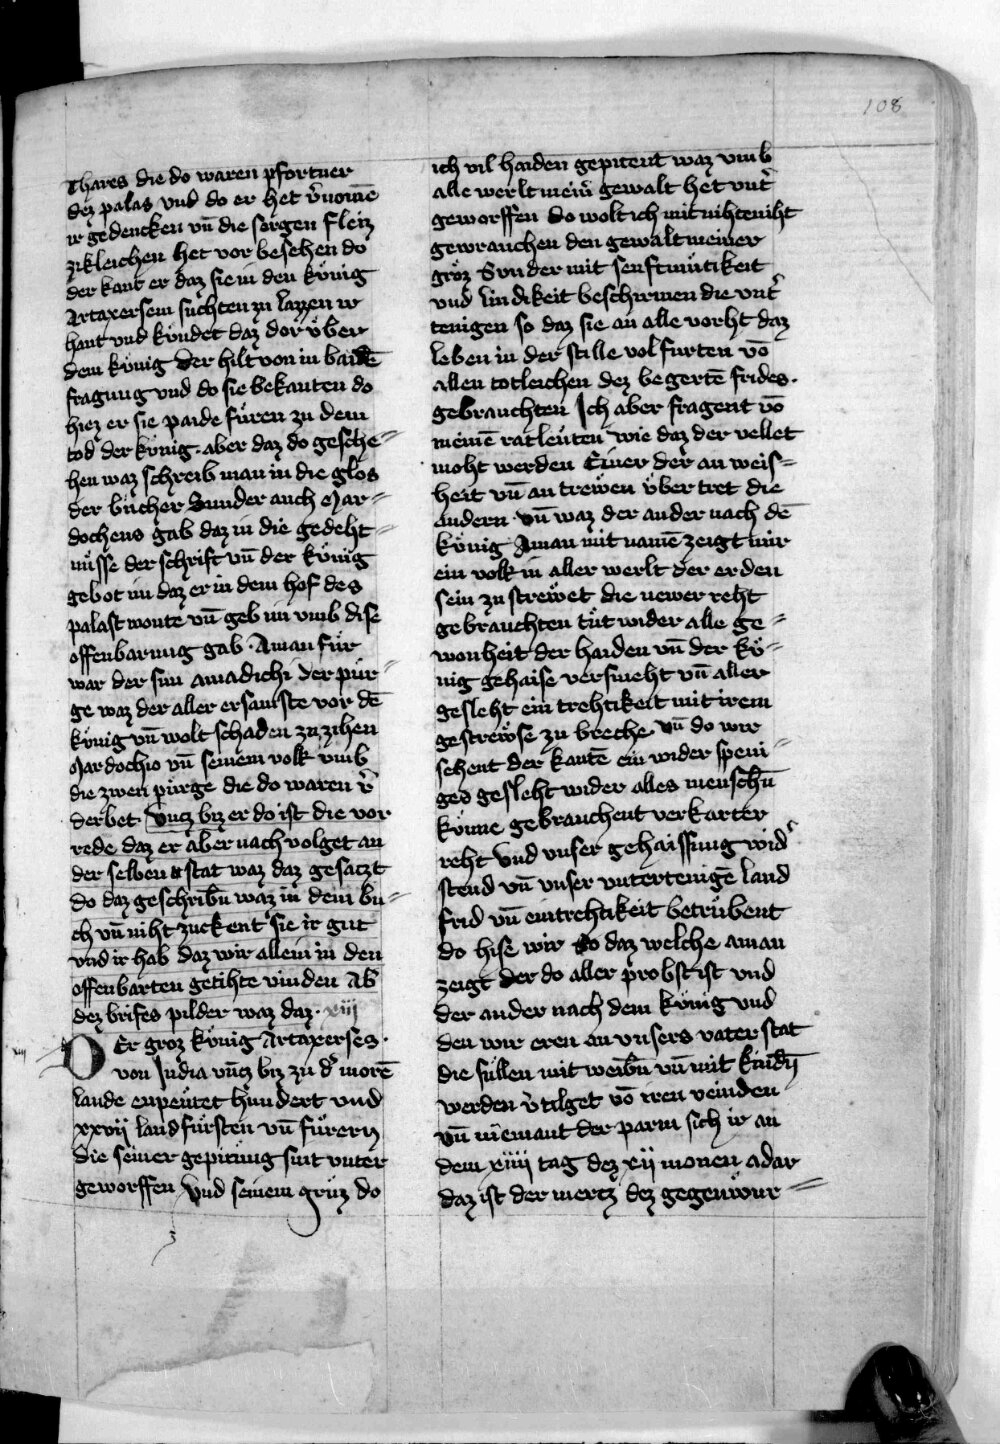 108
Thares die do waren pfortner
dez palas vnd do er het v̾nomē
ir gedencken vn̄ die sorgen fleiz
zikleichen het vor besehen do
der kant er daz sie in den kv̈nig
Artaxersem suchten zu lazzen ir
hant vnd kv̈ndet daz dor v̈ber
dem kv̈nig Der hilt von in baidē
fragung vnd do sie bekanten do
hiez er sie paide fu̎ren zu dem
tod der kv̈nig · aber daz do gesche⸗
hen waz schreib man in die glos
der bu̎cher Sunder auch Mar⸗
docheus gab daz in die gedeht⸗
nu̎sse der schrift vn̄ der kv̈nig
gebot im daz er in dem hof des
palast wonte vn̄ geb im vmb dise
offenbarung gab · Aman fu̎r
war der sun amadichi Der pur⸗
ge waz der aller ersamste vor dē
kv̈nig vn̄ wolt schaden zu zihen
Mardochio vn̄ seinem volk vmb
die zwen pu̎rge die do waren v̾
derbet Vncz biz er do ist die vor
rede daz er aber nach volget an
der selben stat waz daz gesaczt
do daz geschribn̄ waz in dem bu⸗
ch vn̄ niht zuckent sie ir gut
vnd ir hab daz wir allein in den
offenbarten getihte vinden Ab
dez brifes pilder waz daz · xiij
xiij
DEr groz kv̈nig Artaxerses ·
von India vncz biz zu d̾ morē
lande enpeutet hundert vnd
xxvij landfu̎rsten vn̄ fu̎rern
die seiner gepitung sint vnter
geworffen Vnd seinem gruz do
ich vil haiden gepitent waz vmb
alle werlt mein̄ gewalt het vnt̾
geworffen do wolt ich mit nihte niht
gewrauchen den gewalt meiner
gro̎z Svnder mit senftmu̎tikeit
vnd lindikeit beschirmen die vnt̾
tenigen so daz sie an alle vorht daz
leben in der stille vol furten vō
allen totleichen dez begertē frides ·
gebrauchten Ich aber fragent vō
meinē ratleu̎ten wie daz der vellet
moht werden Einer der an weis⸗
heit vn̄ an trewen v̈bertret die
andern vn̄ waz der ander nach dē
kv̈nig Aman mit namē zeigt mir
ein volk in aller werlt der erden
sein zu strewet die newer reht
gebrauchten tu̎t wider alle ge⸗
wonheit der haiden vn̄ der kv̈⸗
nig gehaise versmeht vn̄ aller
gesleht ein trehtikeit mit irem
gestrew̎se zu breche vn̄ do wir
sehent der kantē ein wider speni⸗
ges gesleht wider alles menschn̄
kv̈nne gebrauchent verkarter
reht vnd vnser gehaissung wid̾
stend vn̄ vnser vntertenigē land
frid vn̄ eintrehtikeit betru̎bent
do hise wir so daz welche aman
zeigt der do aller probst ist vnd
der ander nach dem kv̈nig vnd
den wir eren an vnsers vater stat
die su̎llen mit weibn̄ vn̄ mit kindn̄
werden v̾tilget vō iren veinden
vn̄ niemant der parm sich ir an
dem xiiij tag dez xij monen adar
daz ist der mertz dez gegenwu̎r⸗